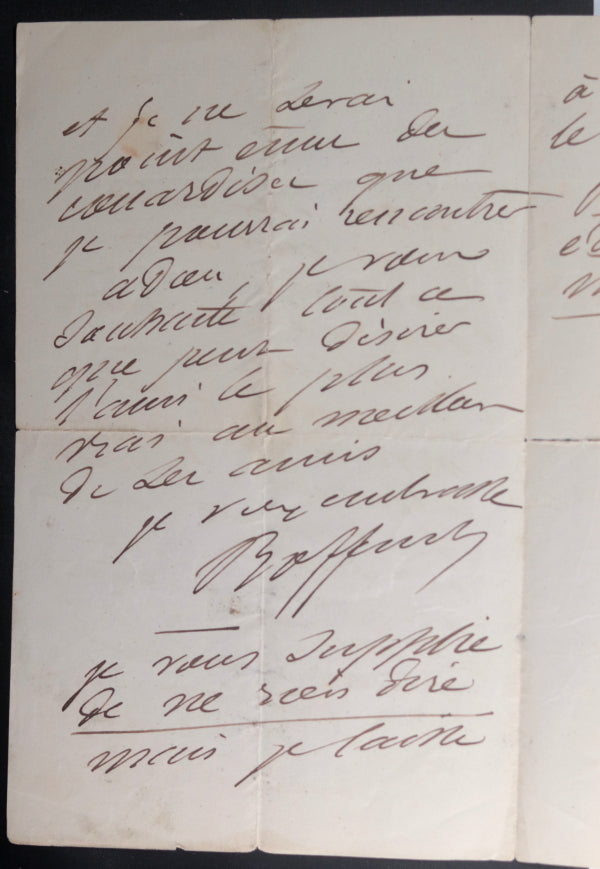 et je ne serai
point ému des
couardises que
je pourrai rencontrer
adieu, je vous
souhaite tout ce
que peut désirer
l'ami le plus
vrai au meilleur
de ses amis
je vous embrasse
je vous supplie
de ne rien dire
mais je laisse
à
le